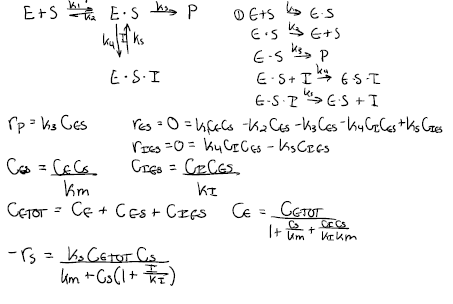 E+S ⇌ E·S → P
k₁ k₂ k₃
k₄ I k₅
E·S·I
① E+S →k₁ E·S
E·S →k₂ E+S
E·S →k₃ P
E·S+I →k₄ E·S·I
E·S·I →k₅ E·S+I
rₚ = k₃C_ES
r_ES = 0 = k₁C_EC_S - k₂C_ES - k₃C_ES - k₄C_IC_ES + k₅C_IES
r_IES = 0 = k₄C_IC_ES - k₅C_IES
C_ES = C_EC_S / Km
C_IES = C_IC_ES / K_I
C_ETOT = C_E + C_ES + C_IES
C_E = C_ETOT / (1 + C_S/Km + C_IC_S/(K_IKm))
-r_S = k₃C_ETOTC_S / (Km + C_S(1 + I/K_I))